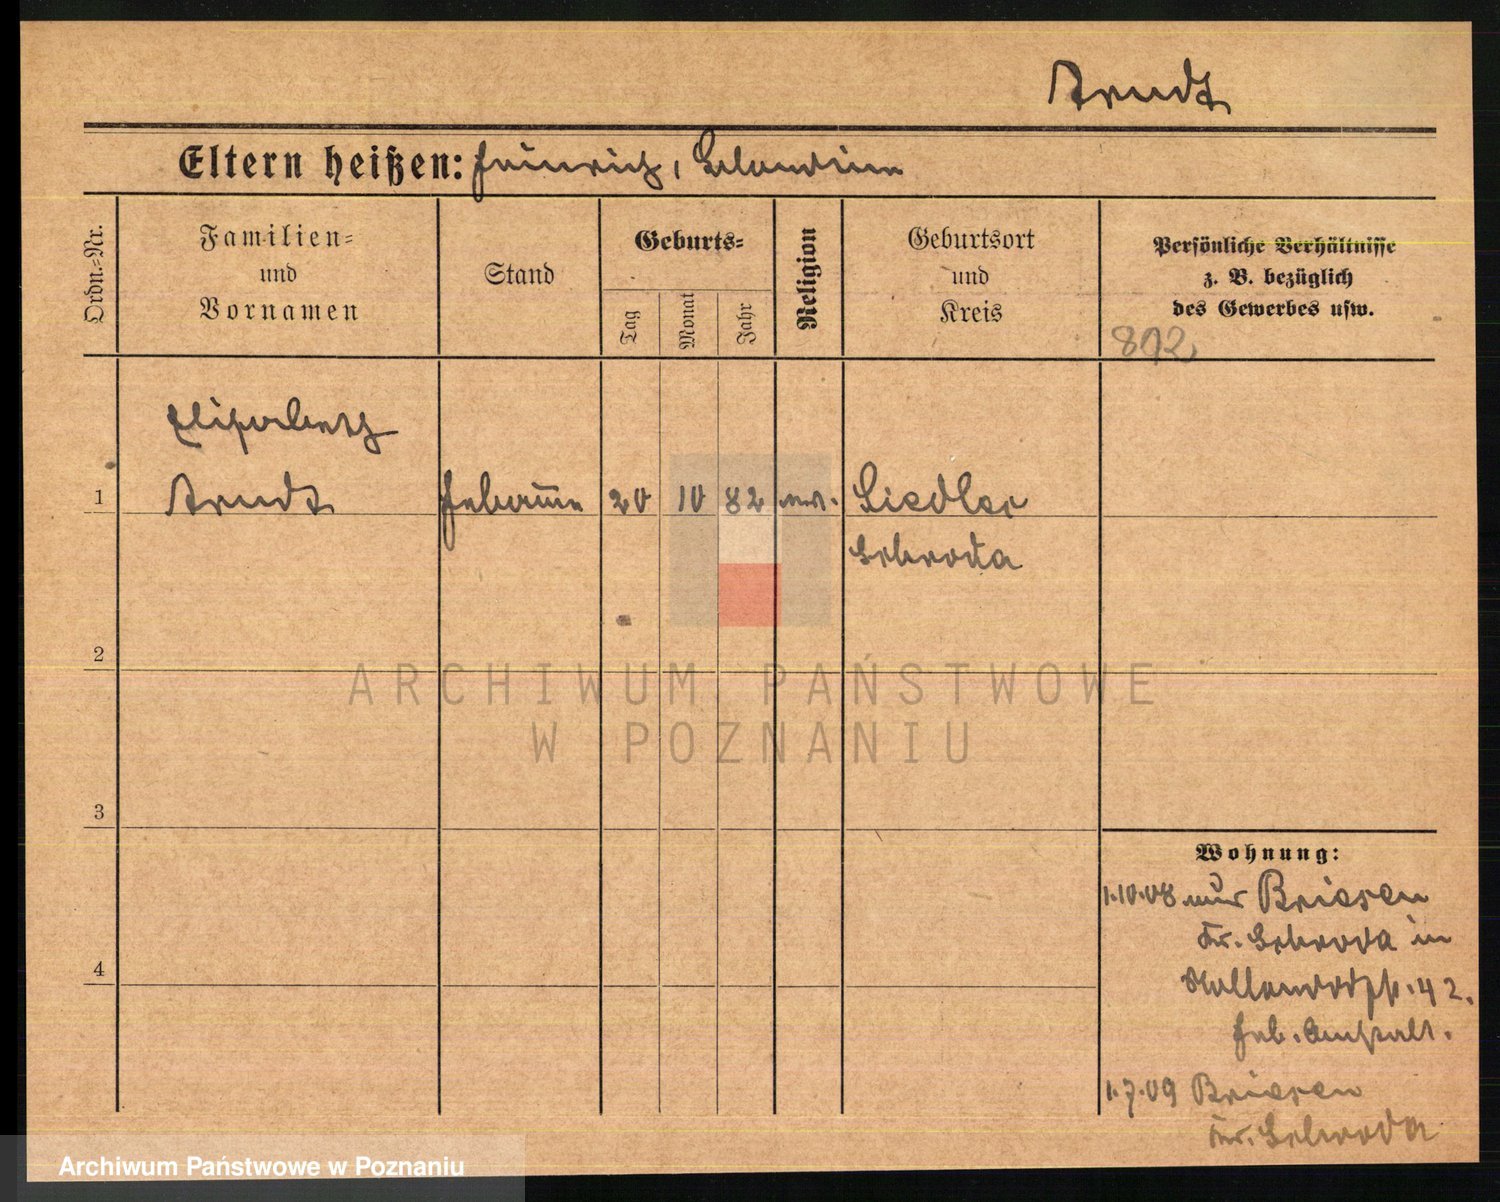 Arndt
Eltern heißen: Heinrich,
Ordn.=Nr.
Familien=
und
Vornamen
Stand
Geburts=
Tag
Monat
Jahr
Religion
Geburtsort
und
Kreis
Persönliche Verhältnisse
z. B. bezüglich
des Gewerbes usw.
892
Elisabeth
1 Arndt Hebamme 20 10 82 ev. Siedlec
Schroda
2
3
4
Wohnung:
1.10.08 aus Briesen
Kr. Schroda in
42.
Heb. Anstalt.
1.7.09 Briesen
Kr. Schroda
ARCHIWUM PAŃSTWOWE
W POZNANIU
Archiwum Państwowe w Poznaniu